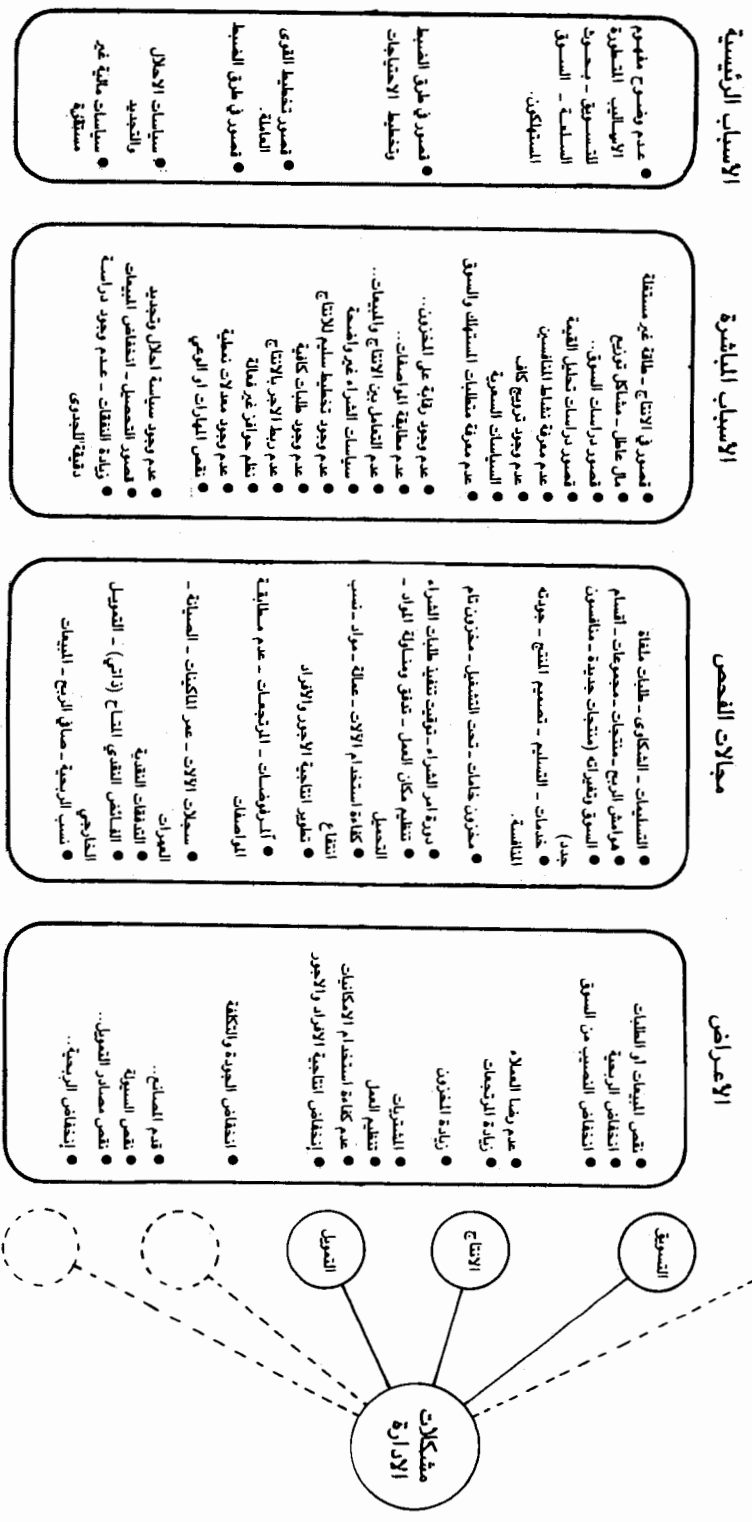 مشكلات
الادارة
التسويق
الانتاج
التمويل
الأعراض
● نقص المبيعات أو الطلبات
● انخفاض الربحية
● انخفاض النصيب من السوق
● عدم رضا العملاء
● زيادة المرتجعات
● زيادة المخزون
● المشتريات
● تنظيم العمل
● عدم كفاءة استخدام الامكانيات
● إنخفاض انتاجية الافراد والاجور
● انخفاض الجودة والتكلفة
● قدم المصانع..
● نقص السيولة
● نقص مصادر التمويل..
● إنخفاض الربحية..
مجالات الفحص
● التسليمات ـ الشكاوى ـ طلبات ملغاة
● هوامش الربح ـ منتجات ـ مجموعات ـ اقسام
● السوق وتغيراته (منتجات جديدة ـ منافسون
جدد)
● خدمات ـ التسليم ـ تصميم المنتج ـ جودته
المنافسة.
● مخزون خامات ـ تحت التشغيل ـ مخزون تام
● دورة امر الشراء ـ توقيت تنفيذ طلبات الشراء
● تنظيم مكان العمل ـ تدفق ومناولة المواد ـ
التحميل
● كفاءة استخدام الآلات ـ عمالة ـ مواد ـ نسب
انتفاع
● تطوير انتاجية الاجور والافراد
● المرفوضات ـ المرتجعات ـ عدم مطابقة
المواصفات
● سجلات الآلات ـ عمر الماكينات ـ الصيانة ـ
العمرات
● التدفقات النقدية
● الفائض النقدي المتاح (ذاتي) ـ التمويل
الخارجي
● نسب الربحية ـ صافي الربح ـ المبيعات
الأسباب المباشرة
● قصور في الانتاج ـ طاقة غير مستغلة
● مال عاطل ـ مشاكل توزيع
● قصور دراسات السوق..
● قصور دراسات تحليل القيمة
● عدم معرفة نشاط المنافسين
● عدم وجود ترويج كاف
● السياسات السعرية
● عدم معرفة متطلبات المستهلك والسوق
● عدم وجود رقابة على المخزون..
● عدم مطابقة المواصفات..
● عدم التعامل بين الانتاج والمبيعات..
● سياسات الشراء غير واضحة
● عدم وجود تخطيط سليم للانتاج
● عدم وجود طلبات كافية
● عدم ربط الاجر بالانتاج
● نظم حوافز غير فعالة
● عدم وجود معدلات نمطية
● نقص المهارات او الوعي
● عدم وجود سياسة احلال وتجديد
● قصور التحصيل ـ انخفاض المبيعات
● زيادة النفقات ـ عدم وجود دراسة
دقيقة للجدوى
الأسباب الرئيسية
● عدم وضوح مفهوم
الاساليب المتطورة
للتسويق ـ بحوث
السلعة ـ السوق
المستهلكون.
● قصور في طرق الضبط
وتخطيط الاحتياجات
● قصور تخطيط القوى
العاملة.
● قصور في طرق الضبط
● سياسات الاحلال
والتجديد
● سياسات مالية غير
مستقرة